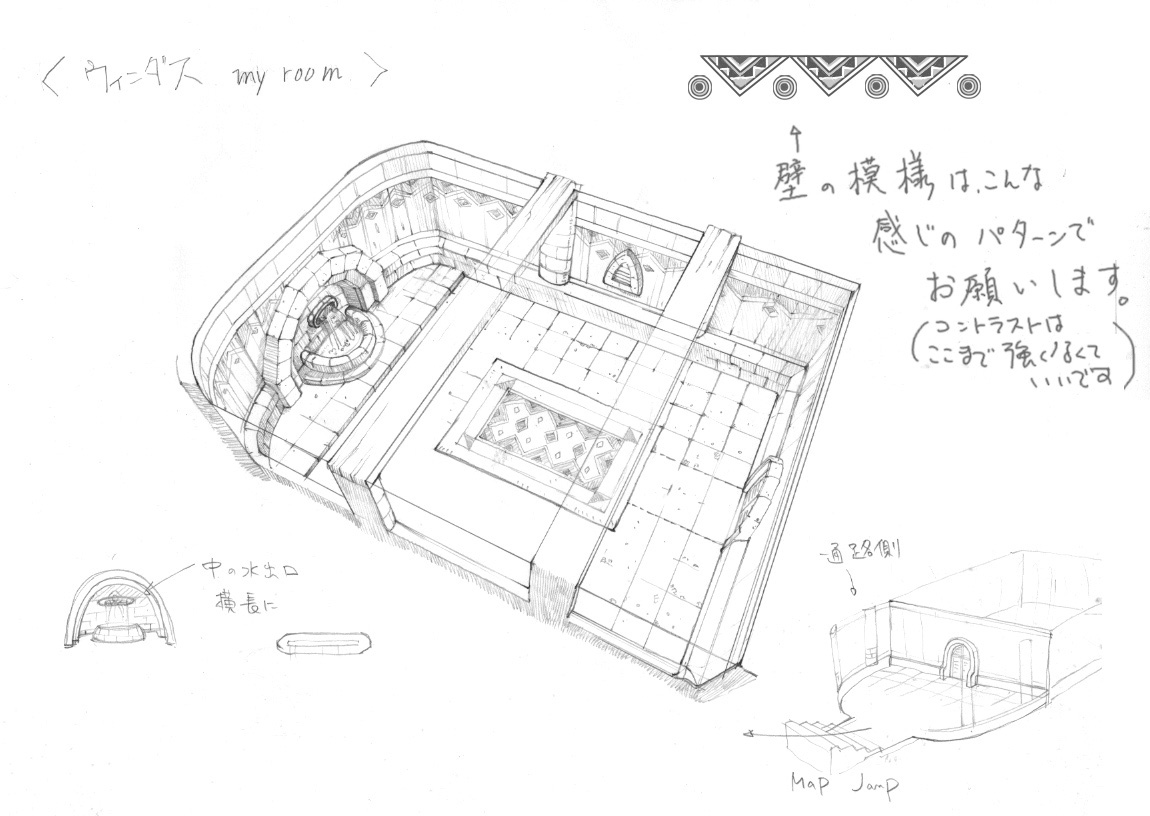 〈 ウィンダス my room 〉
壁の模様は、こんな
感じの パターンで
お願いします。
(コントラストは
ここまで強くなくて
いいです)
中の水出口
横長に
通路側
Map Jump